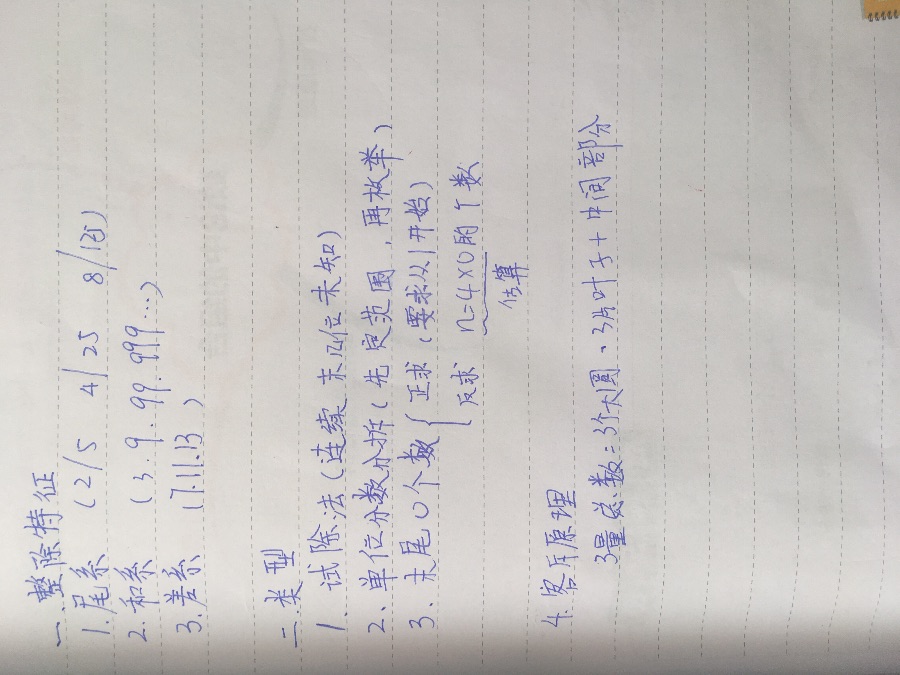 一.整除特征
1.尾系 (2/5 4/25 8/125)
2.和系 (3.9.99.999...)
3.差系 (7.11.13)
二.类型
1.试除法(连续 末几位未知)
2.单位分数分拆(先定范围,再枚举)
3.末尾0个数{正求(要求从1开始)
反求 n=4×0的个数
估算
4.容斥原理
3量总数=3个大圆、3片叶子+中间部分